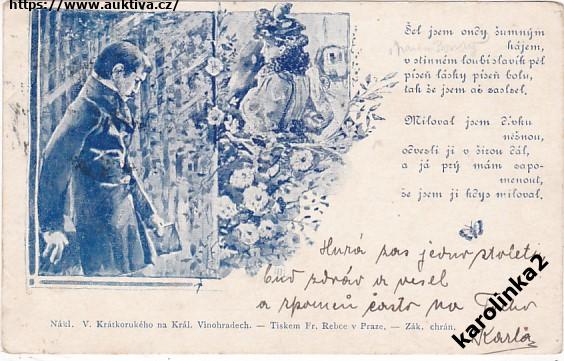 https://www.auktiva.cz/
Šel jsem ondy šumným
hájem,
v stinném loubí slavík pěl
píseň lásky píseň bolu,
tak že jsem až zaslzel.
Miloval jsem dívku
něžnou,
odvezli ji v širou dál,
a já prý mám zapo-
menout,
že jsem ji kdys miloval.
Hurá zas jedno století
buď zdráv a vesel
a zpomeň často na
Karla
Nákl. V. Krátkorukého na Král. Vinohradech. — Tiskem Fr. Rebce v Praze. — Zák. chrán.
karolinka2